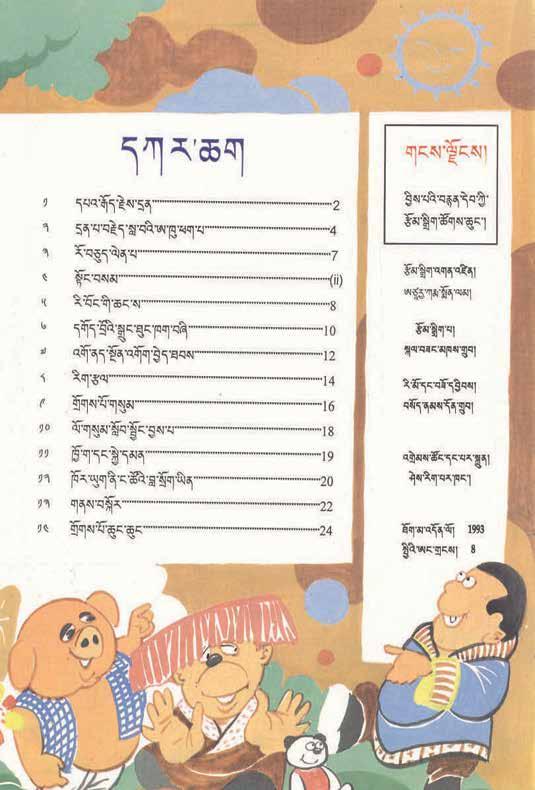 དཀར་ཆག
༡ དཔའ་རྒོད་རྗེས་དྲན 2
༢ དྲན་པ་བརྗེད་སླ་བའི་ཨ་ཁུ་ཕག་པ 4
༣ རོ་བཅུད་ལེན་པ 7
༤ སྟོང་བསམ (ii)
༥ རི་བོང་གི་ཆང་ས 8
༦ དགོད་བྲོའི་སྒྲུང་ཐུང་ཁག་བཞི 10
༧ འགོ་ནད་སྔོན་འགོག་བྱེད་ཐབས 12
༨ རིག་རྩལ 14
༩ གྲོགས་པོ་གསུམ 16
༡༠ ལོ་གསུམ་སློབ་སྦྱོང་བྱས་པ 18
༡༡ ཁྱོ་ག་དང་སྐྱེ་དམན 19
༡༢ ཁོར་ཡུག་ནི་ང་ཚོའི་བླ་སྲོག་ཡིན 20
༡༣ གནས་བསྐོར 22
༡༤ གྲོགས་པོ་ཆུང་ཆུང 24
གངས་ལྗོངས།
བྱིས་པའི་བརྙན་དེབ་ཀྱི་
རྩོམ་སྒྲིག་ཚོགས་ཆུང་།
རྩོམ་སྒྲིག་འགན་འཛིན།
ཨ་ཙཱརྱ་ཀརྨ་སྨོན་ལམ།
རྩོམ་སྒྲིག་པ།
སྐལ་བཟང་མཁས་གྲུབ།
རི་མོ་དང་བཟོ་དབྱིབས།
བསོད་ནམས་དོན་གྲུབ།
འགྲེམས་ཚོང་དང་པར་སྐྲུན།
ཤེས་རིག་པར་ཁང་།
ཐོག་མ་འདོན་ལོ། 1993
སྤྱིའི་ཨང་གྲངས། 8